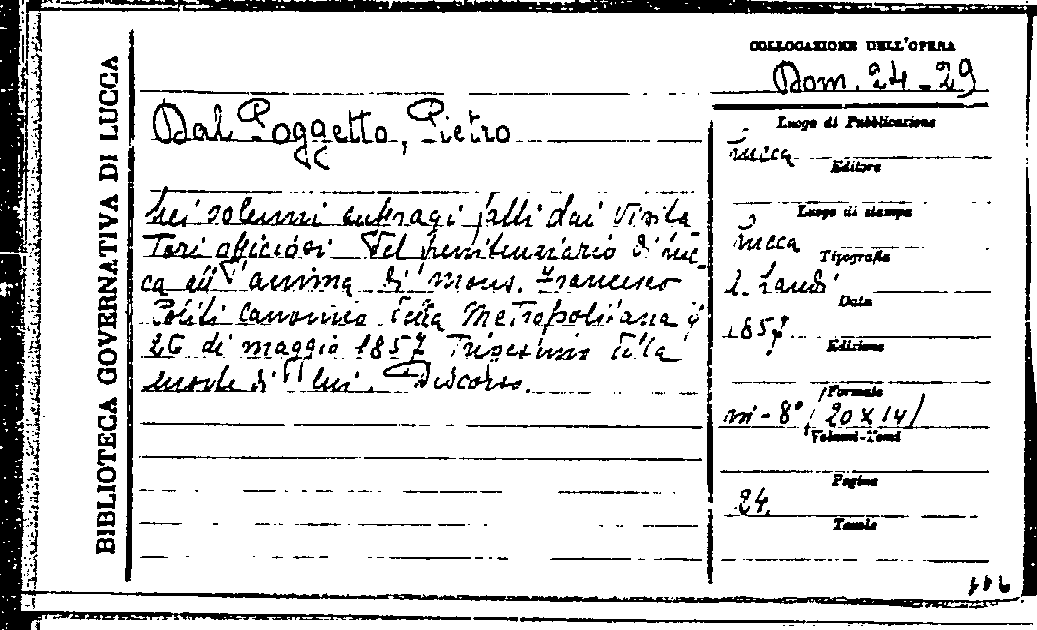 BIBLIOTECA GOVERNATIVA DI LUCCA
COLLOCAZIONE DELL'OPERA
Dom. 24-29
Dal Poggetto, Pietro
Nei solenni suffragi fatti dai visita
tori officiosi del penitenziario di Luc-
ca all'anima di mons. Francesco
Politi canonico della Metropolitana il
26 di maggio 1857 Trigesimo della
morte di lui. Discorso.
Luogo di Pubblicazione
Lucca
Editore
Luogo di stampa
Lucca
Tipografia
L. Landi
Data
1857
Edizione
Formato
in-8° (20x14)
Volumi-Tomi
Pagine
24.
Tavole